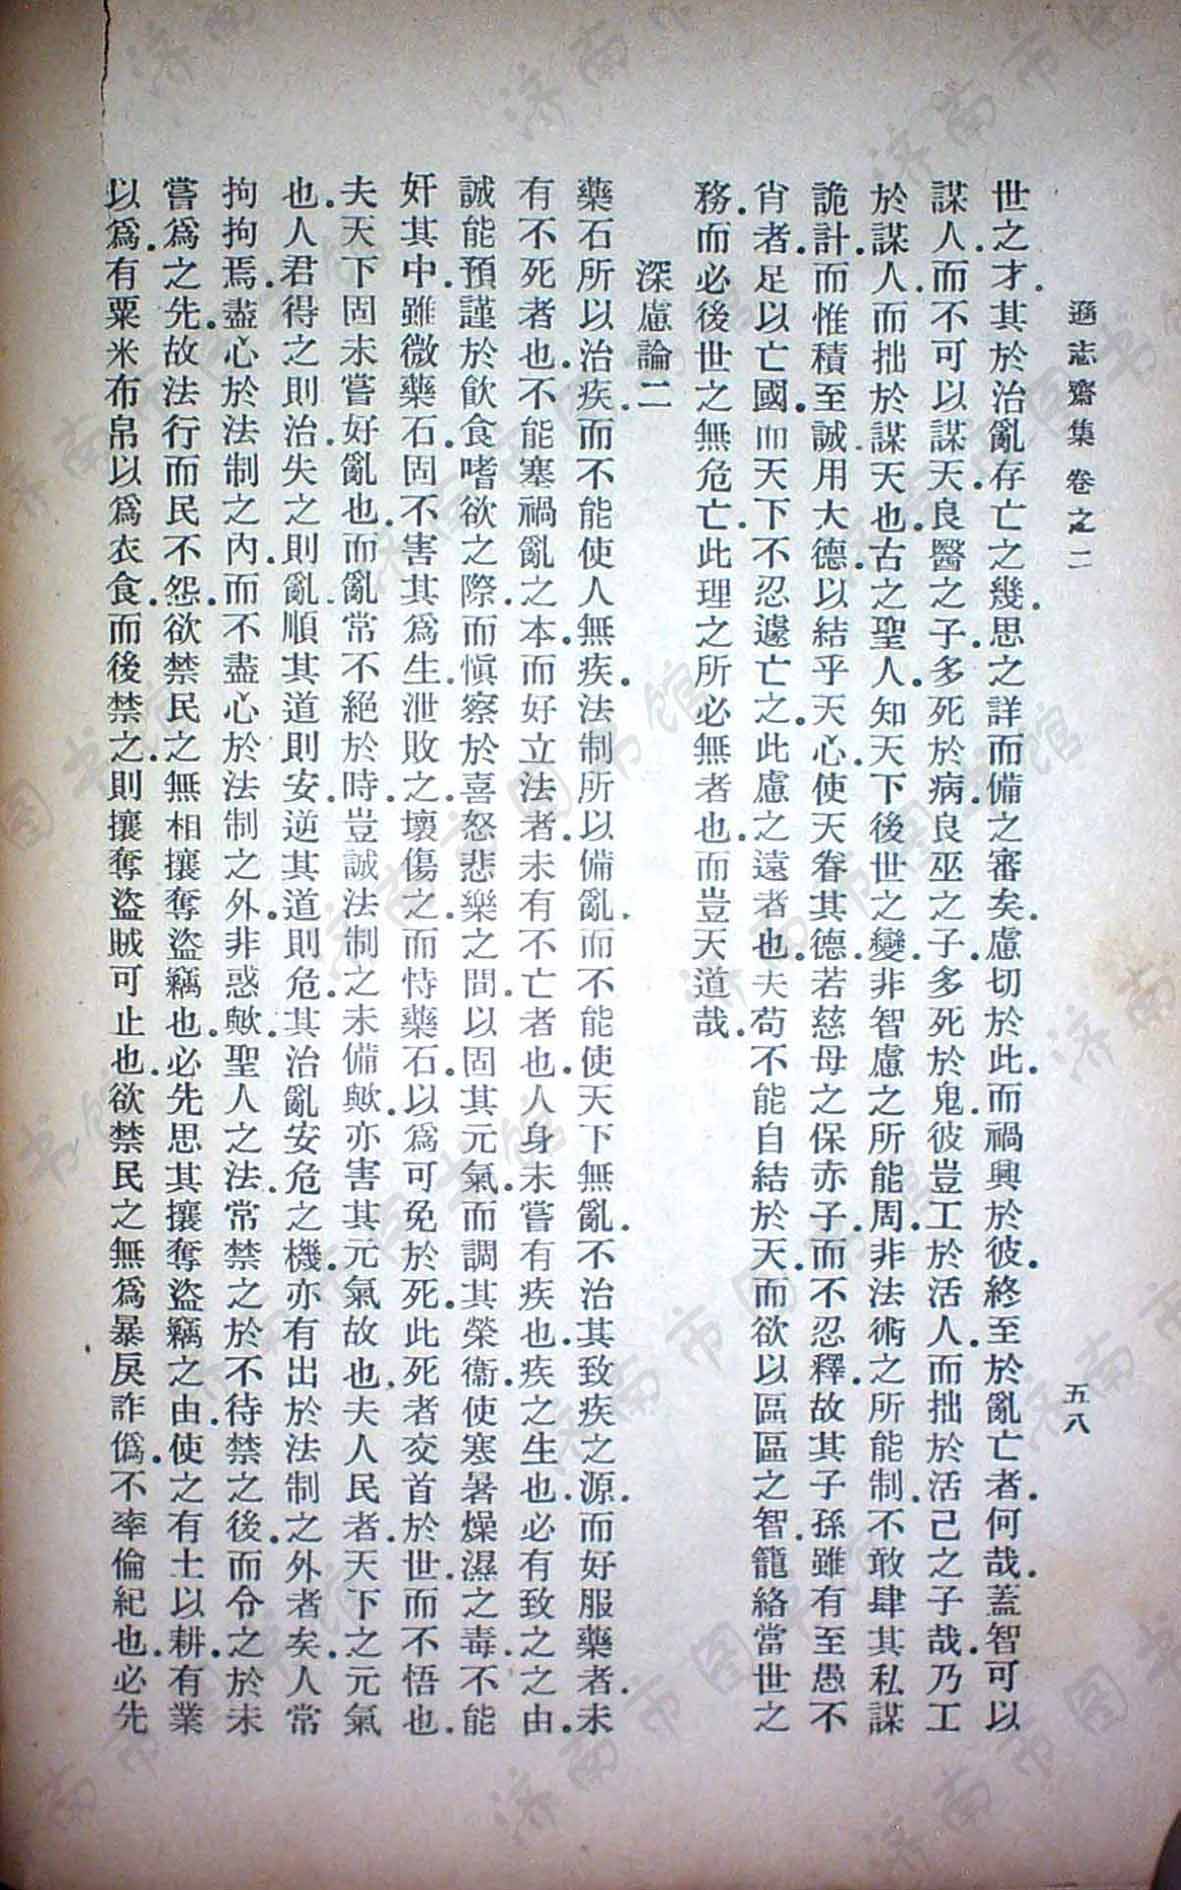 遜志齋集 卷之二
五八
世之才.其於治亂存亡之幾.思之詳而備之審矣.慮切於此.而禍興於彼.終至於亂亡者.何哉.蓋智可以
謀人.而不可以謀天.良醫之子.多死於病.良巫之子.多死於鬼.彼豈工於活人.而拙於活己之子哉.乃工
於謀人.而拙於謀天也.古之聖人.知天下後世之變.非智慮之所能周.非法術之所能制.不敢肆其私謀
詭計.而惟積至誠用大德.以結乎天心.使天眷其德.若慈母之保赤子.而不忍釋.故其子孫.雖有至愚不
肖者.足以亡國.而天下不忍遽亡之.此慮之遠者也.夫苟不能自結於天.而欲以區區之智.籠絡當世之
務.而必後世之無危亡.此理之所必無者也.而豈天道哉.
深慮論二
藥石所以治疾.而不能使人無疾.法制所以備亂.而不能使天下無亂.不治其致疾之源.而好服藥者.未
有不死者也.不能塞禍亂之本.而好立法者.未有不亡者也.人身未嘗有疾也.疾之生也.必有致之之由.
誠能預謹於飲食嗜欲之際.而愼察於喜怒悲樂之間.以固其元氣.而調其榮衞.使寒暑燥濕之毒.不能
奸其中.雖微藥石.固不害其爲生.泄敗之.壞傷之.而恃藥石.以爲可免於死.此死者交首於世.而不悟也.
夫天下固未嘗好亂也.而亂常不絕於時.豈誠法制之未備歟.亦害其元氣故也.夫人民者.天下之元氣
也.人君得之則治.失之則亂.順其道則安.逆其道則危.其治亂安危之機.亦有出於法制之外者矣.人常
拘拘焉.盡心於法制之內.而不盡心於法制之外.非惑歟.聖人之法.常禁之於不待禁之後.而令之於未
嘗爲之先.故法行而民不怨.欲禁民之無相攘奪盜竊也.必先思其攘奪盜竊之由.使之有土以耕.有業
以爲.有粟米布帛以爲衣食.而後禁之.則攘奪盜賊可止也.欲禁民之無爲暴戾詐僞.不率倫紀也.必先